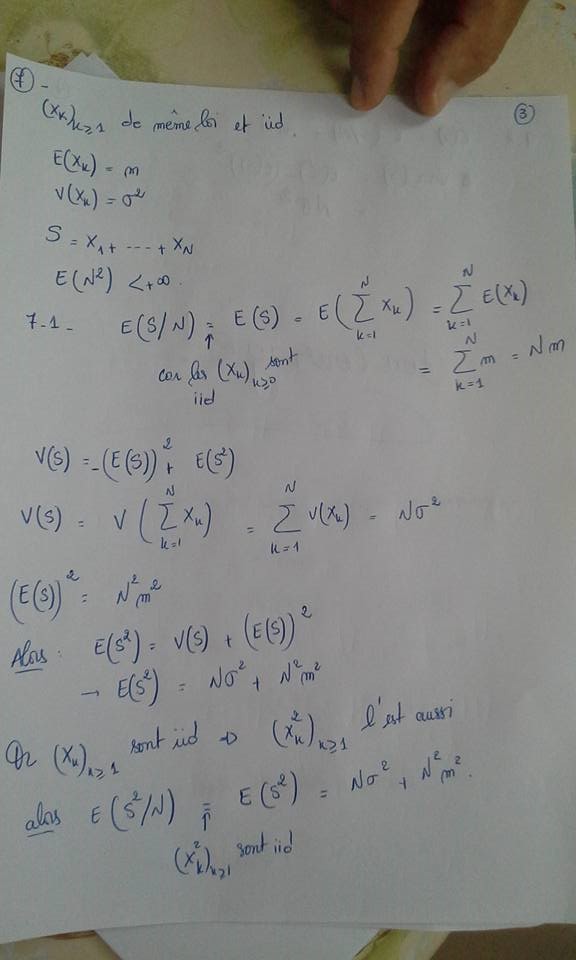 ⑦ -
③
(Xk)k≥1 de même loi et iid.
E(Xk) = m
V(Xk) = σ²
S = X1 + ---- + XN
E(N²) < +∞.
7-1- E(S/N) = E(S) = E(∑_{k=1}^{N} Xk) = ∑_{k=1}^{N} E(Xk)
↑
car les (Xk)k≥0 sont iid
= ∑_{k=1}^{N} m = Nm
V(S) = -(E(S))² + E(S²)
V(S) = V(∑_{k=1}^{N} Xk) = ∑_{k=1}^{N} V(Xk) = Nσ²
(E(S))² = N²m²
Alors : E(S²) = V(S) + (E(S))²
→ E(S²) = Nσ² + N²m²
Or (Xk)k≥1 sont iid ⇒ (Xk²)k≥1 l'est aussi
alors E(S²/N) = E(S²) = Nσ² + N²m².
↑
(Xk²)k≥1 sont iid